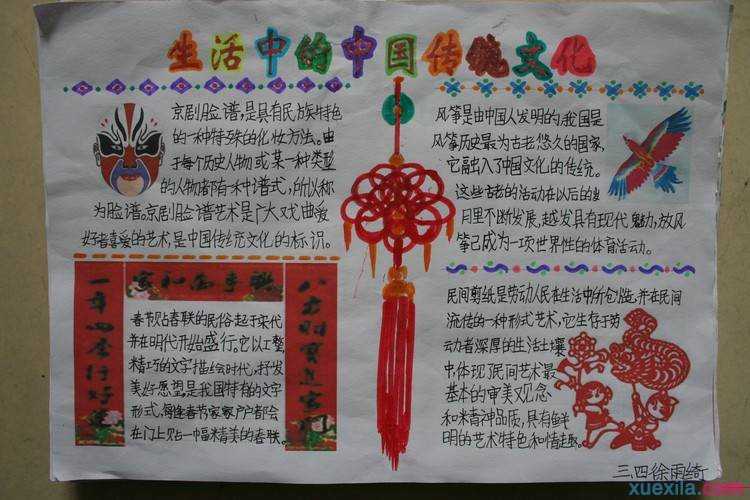 生活中的中国传统文化
京剧脸谱,是具有民族特色
的一种特殊的化妆方法。由
于每个历史人物或某一种类型
的人物都有一种谱式,所以称
为脸谱。京剧脸谱艺术是广大戏曲爱
好者喜爱的艺术,是中国传统文化的标识。
风筝是由中国人发明的,我国是
风筝历史最为古老悠久的国家,
它融入了中国文化的传统。
这些古老的活动在以后的岁
月里不断发展,越发具有现代魅力,放风
筝已成为一项世界性的体育活动。
家和万事兴
一年四季行好运
八方财宝进家门
春节贴春联的民俗起于宋代
并在明代开始盛行。它以工整、
精巧的文字描绘时代,抒发
美好愿望,是我国特有的文学
形式,每逢春节家家户户都会
在门上贴一幅精美的春联。
民间剪纸是劳动人民在生活中所创造,并在民间
流传的一种形式艺术,它生存于劳
动者深厚的生活土壤
中,体现了民间艺术最
基本的审美观念
和精神品质,具有鲜
明的艺术特色和情趣。
三、四 徐雨绮
xuexila.com